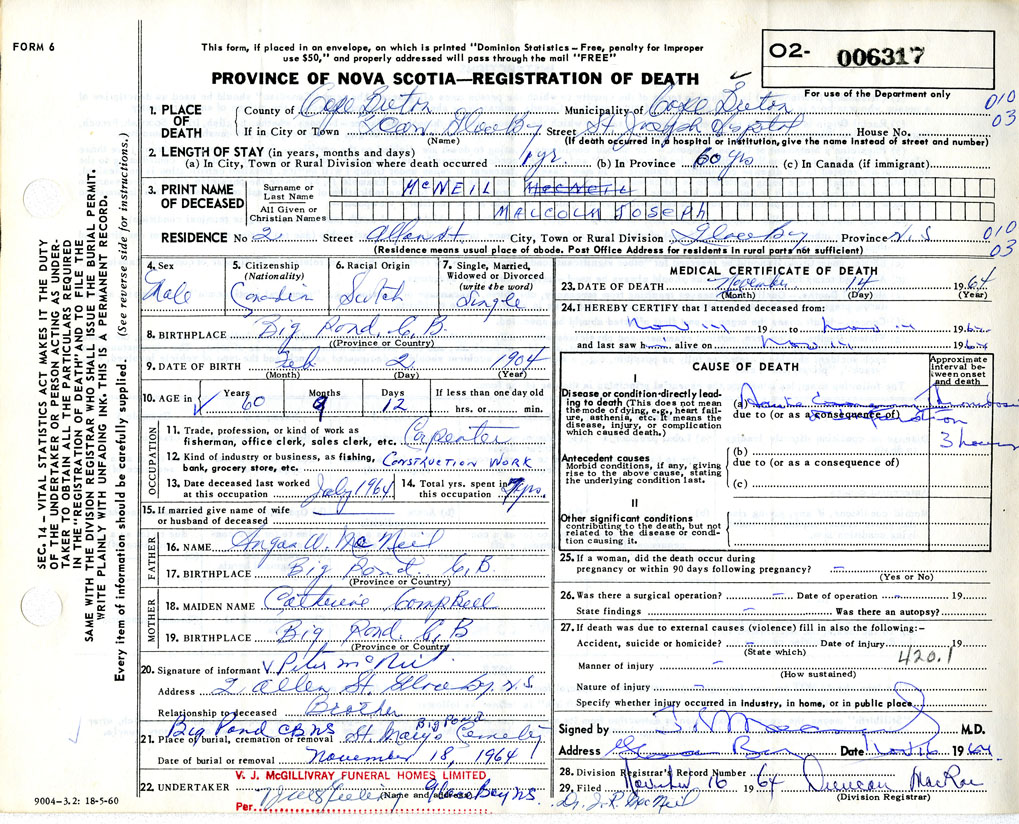 FORM 6
This form, if placed in an envelope, on which is printed "Dominion Statistics – Free, penalty for improper
use $50," and properly addressed will pass through the mail "FREE"
PROVINCE OF NOVA SCOTIA—REGISTRATION OF DEATH
02- 006317
For use of the Department only
010
03
1. PLACE OF DEATH
County of Cape Breton Municipality of Cape Breton
If in City or Town Town Glace Bay Street St. Joseph Hospital House No.
(Name) (If death occurred in a hospital or institution, give the name instead of street and number)
2. LENGTH OF STAY (in years, months and days)
(a) In City, Town or Rural Division where death occurred 1 yr. (b) In Province 60 yrs (c) In Canada (if immigrant)
3. PRINT NAME OF DECEASED
Surname or Last Name McNEIL MacNeil
All Given or Christian Names MALCOLM JOSEPH
RESIDENCE No 2 Street Allen st City, Town or Rural Division Glace Bay Province N.S
010
03
(Residence means usual place of abode. Post Office Address for residents in rural parts not sufficient)
4. Sex
Male
5. Citizenship (Nationality)
Canadin
6. Racial Origin
Scotch
7. Single, Married, Widowed or Divorced (write the word)
Single
8. BIRTHPLACE Big Pond, C.B.
(Province or Country)
9. DATE OF BIRTH Feb 2 1904
(Month) (Day) (Year)
10. AGE in Years 60 Months 9 Days 12 If less than one day old hrs. or min.
OCCUPATION
11. Trade, profession, or kind of work as
fisherman, office clerk, sales clerk, etc. Carpenter
12. Kind of industry or business, as fishing,
bank, grocery store, etc. CONSTRUCTION WORK
13. Date deceased last worked at this occupation July 1964 14. Total yrs. spent in this occupation yrs.
15. If married give name of wife
or husband of deceased
FATHER
16. NAME Angus W. McNeil
17. BIRTHPLACE Big Pond, C.B.
(Province or Country)
MOTHER
18. MAIDEN NAME Catherine Campbell
19. BIRTHPLACE Big Pond, C.B
(Province or Country)
20. Signature of informant Peter McNeil
Address 2 Allen St. Glace Bay N.S
Relationship to deceased Brother
Big Pond CB NS Big Pond
21. Place of burial, cremation or removal St. Mary's Cemetery
Date of burial or removal November 18, 1964
V. J. McGILLIVRAY FUNERAL HOMES LIMITED
22. UNDERTAKER (Name and address) Glace Bay NS.
Per
9004–3.2: 18-5-60
MEDICAL CERTIFICATE OF DEATH
23. DATE OF DEATH November 14 1964
(Month) (Day) (Year)
24. I HEREBY CERTIFY that I attended deceased from:
Nov 14 19 to Nov 14 1964
and last saw him alive on Nov 14 1964
CAUSE OF DEATH
Approximate interval between onset and death
I
Disease or condition directly leading to death (This does not mean the mode of dying, e.g., heart failure, asthenia, etc. It means the disease, injury, or complication which caused death.)
(a) Thrombosis
due to (or as a consequence of)
3 hours
Antecedent causes
Morbid conditions, if any, giving rise to the above cause, stating the underlying condition last.
(b)
due to (or as a consequence of)
(c)
II
Other significant conditions contributing to the death, but not related to the disease or condition causing it.
25. If a woman, did the death occur during
pregnancy or within 90 days following pregnancy? –
(Yes or No)
26. Was there a surgical operation? – Date of operation – 19
State findings – Was there an autopsy?
27. If death was due to external causes (violence) fill in also the following:–
Accident, suicide or homicide? – Date of injury 19
(State which)
420.1
Manner of injury –
(How sustained)
Nature of injury –
Specify whether injury occurred in industry, in home, or in public place
Signed by M.D.
Address Glace Bay Date Nov 16 1964
28. Division Registrar's Record Number
29. Filed November 16 1964 Duncan MacRae
(Division Registrar)
Dr. J. R. MacNeil
SEC. 14 – VITAL STATISTICS ACT MAKES IT THE DUTY
OF THE UNDERTAKER OR PERSON ACTING AS UNDER-
TAKER TO OBTAIN ALL THE PARTICULARS REQUIRED
IN THE "REGISTRATION OF DEATH" AND TO FILE THE
SAME WITH THE DIVISION REGISTRAR WHO SHALL ISSUE THE BURIAL PERMIT.
WRITE PLAINLY WITH UNFADING INK. THIS IS A PERMANENT RECORD.
Every item of information should be carefully supplied. (See reverse side for instructions.)